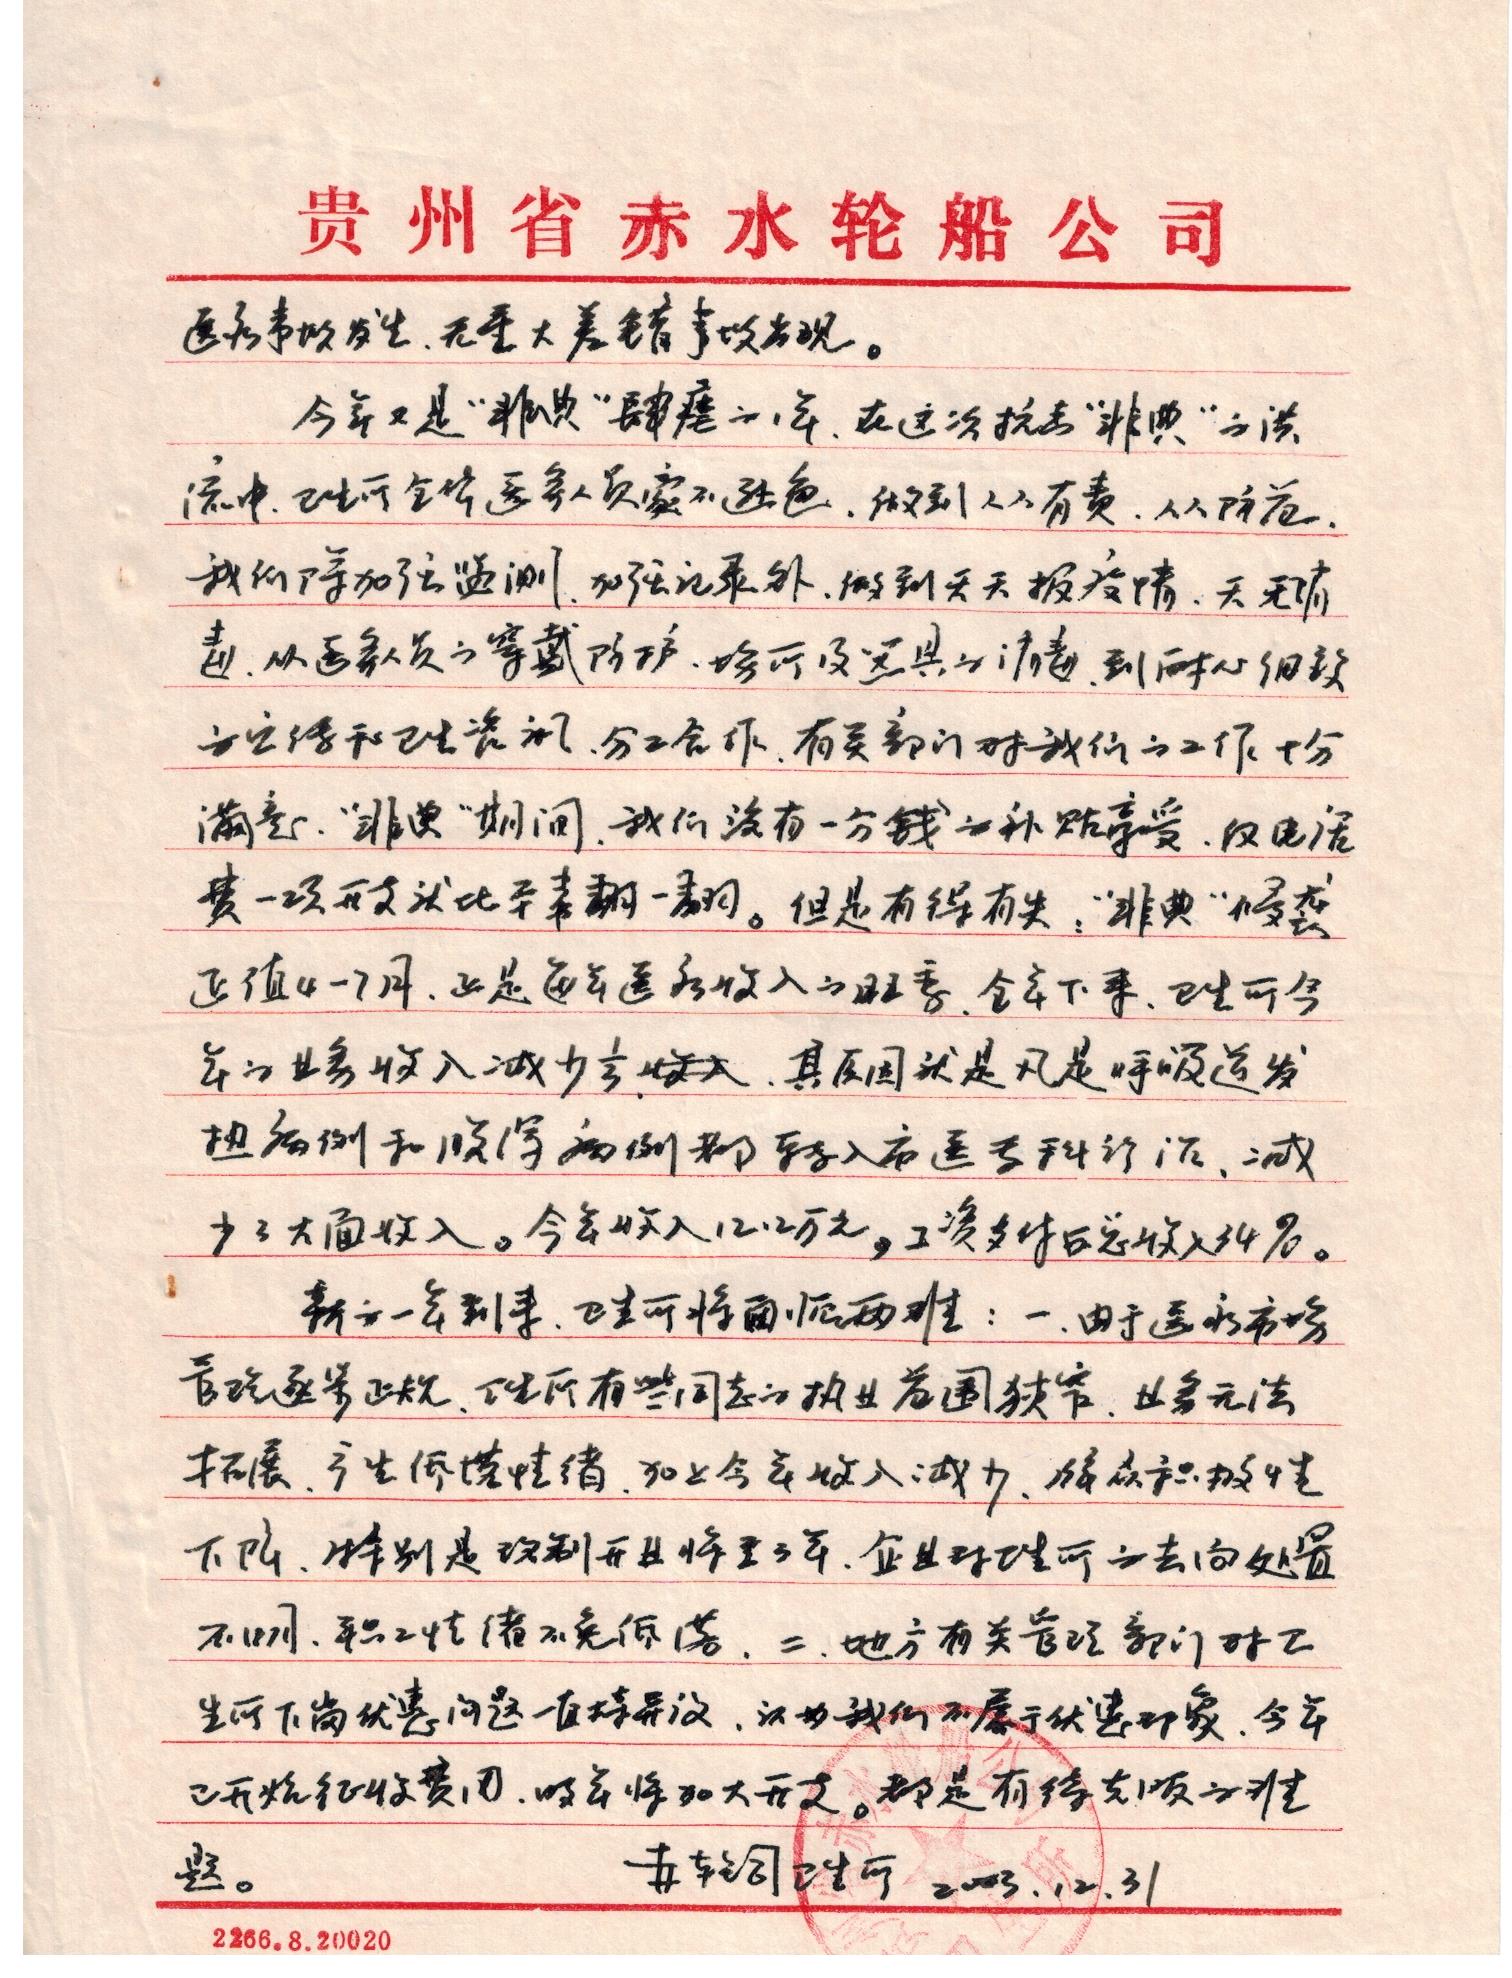 贵州省赤水轮船公司
医疗事故发生、无重大差错事故出现。
今年又是“非典”肆虐的1年、在这次抗击“非典”的洪
流中、卫生所全体医务人员毫不逊色、做到人人有责、人人防范、
我们除加强监测、加强记录外、做到天天报疫情、天天消
毒、从医务人员的穿戴防护、场所及器具的消毒、到耐心细致
的宣传和卫生咨询、分工合作、有关部门对我们的工作十分
满意、“非典”期间、我们没有一分钱的补贴享受、仅电话
费一项开支就比平常翻一翻。但是有得有失:“非典”侵袭
正值4-7月、正是每年医疗收入的旺季、全年下来、卫生所今
年的业务收入减少、其原因就是凡是呼吸道发
热病例和腹泻病例都转入市医专科诊治、减
少了大面收入。今年收入12.12万元,工资支付占总收入34%。
新的一年到来、卫生所将面临两难:一、由于医疗市场
管理逐步正规、卫生所有些同志的执业范围狭窄、业务无法
拓展、产生低落情绪、加上今年收入减少、积极性
下降、特别是改制开业将至3年、企业对卫生所的去向处置
不明、职工情绪不免低落、二、地方有关管理部门对卫
生所下岗优惠问题一直持异议、认为我们不属于优惠对象、今年
已开始征收费用、明年将加大开支。都是有待克服的难
题。 赤轮司卫生所 2003.12.31
2266.8.20020